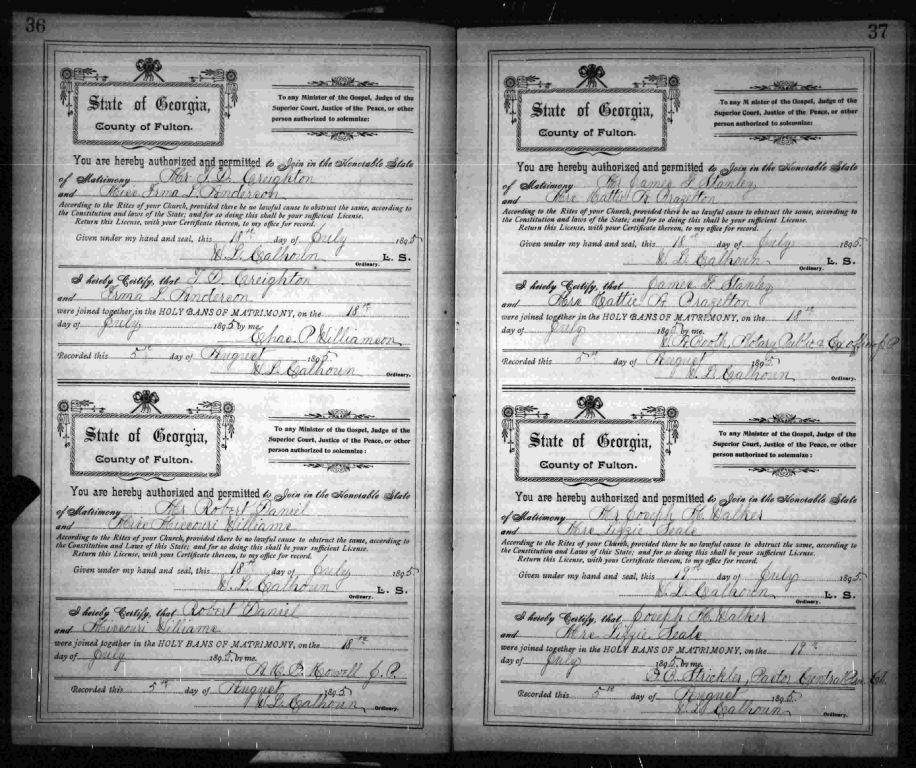 36
State of Georgia,
County of Fulton.
To any Minister of the Gospel, Judge of the
Superior Court, Justice of the Peace, or other
person authorized to solemnize:
You are hereby authorized and permitted to Join in the Honorable State
of Matrimony Mr T. D. Creighton
and Miss Irma L Henderson
According to the Rites of your Church, provided there be no lawful cause to obstruct the same, according to
the Constitution and laws of the State; and for so doing this shall be your sufficient License.
Return this License, with your Certificate thereon, to my office for record.
Given under my hand and seal, this 18th day of July 1895
W. L. Calhoun L. S.
Ordinary.
I hereby Certify, that T. D. Creighton
and Irma L Henderson
were joined together in the HOLY BANS OF MATRIMONY, on the 18th
day of July 1895 by me
Chas P. Williamson
Recorded this 5th day of August 1895
W. L. Calhoun Ordinary.
State of Georgia,
County of Fulton.
To any Minister of the Gospel, Judge of the
Superior Court, Justice of the Peace, or other
person authorized to solemnize:
You are hereby authorized and permitted to Join in the Honorable State
of Matrimony Mr Robert Daniel
and Miss Missouri Williams
According to the Rites of your Church, provided there be no lawful cause to obstruct the same, according to
the Constitution and Laws of this State; and for so doing this shall be your sufficient License.
Return this License, with your Certificate thereon, to my office for record.
Given under my hand and seal, this 18th day of July 1895
W. L. Calhoun L. S.
Ordinary.
I hereby Certify, that Robert Daniel
and Missouri Williams
were joined together in the HOLY BANS OF MATRIMONY, on the 18th
day of July 1895, by me
Howell J. P.
Recorded this 5th day of August 1895
W. L. Calhoun Ordinary.
37
State of Georgia,
County of Fulton.
To any Minister of the Gospel, Judge of the
Superior Court, Justice of the Peace, or other
person authorized to solemnize:
You are hereby authorized and permitted to Join in the Honorable State
of Matrimony Mr James F. Stanley
and Mrs Mattie A. Brazelton
According to the Rites of your Church, provided there be no lawful cause to obstruct the same, according to
the Constitution and laws of the State; and for so doing this shall be your sufficient License.
Return this License, with your Certificate thereon, to my office for record.
Given under my hand and seal, this 18th day of July 1895
W. L. Calhoun L. S.
Ordinary.
I hereby Certify, that James F. Stanley
and Mrs Mattie A. Brazelton
were joined together in the HOLY BANS OF MATRIMONY, on the 18th
day of July 1895 by me.
Notary Public & Ex officio J. P.
Recorded this 5th day of August 1895
W. L. Calhoun Ordinary.
State of Georgia,
County of Fulton.
To any Minister of the Gospel, Judge of the
Superior Court, Justice of the Peace, or other
person authorized to solemnize:
You are hereby authorized and permitted to Join in the Honorable State
of Matrimony Mr Joseph M. Walker
and Mrs Lizzie Seals
According to the Rites of your Church, provided there be no lawful cause to obstruct the same, according to
the Constitution and Laws of this State; and for so doing this shall be your sufficient License.
Return this License, with your Certificate thereon, to my office for record.
Given under my hand and seal, this 19th day of July 1895
W. L. Calhoun L. S.
Ordinary.
I hereby Certify, that Joseph M. Walker
and Mrs Lizzie Seals
were joined together in the HOLY BANS OF MATRIMONY, on the 19th
day of July 1895, by me.
Strickler, Pastor Central
Recorded this 5th day of August 1895
W. L. Calhoun Ordinary.